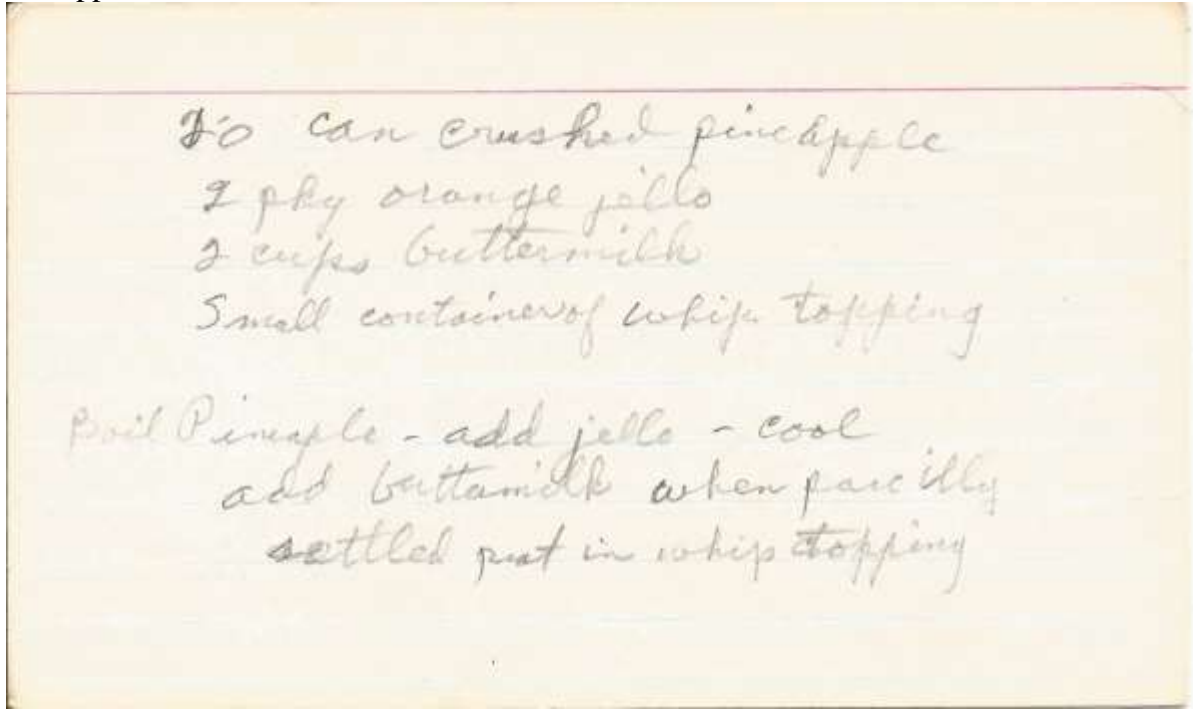 can crushed pineapple
2 pkg orange jello
2 cups buttermilk
Small container of whip topping
Boil Pineaple - add jello - cool
add buttamilk when parcilly
settled put in whip topping